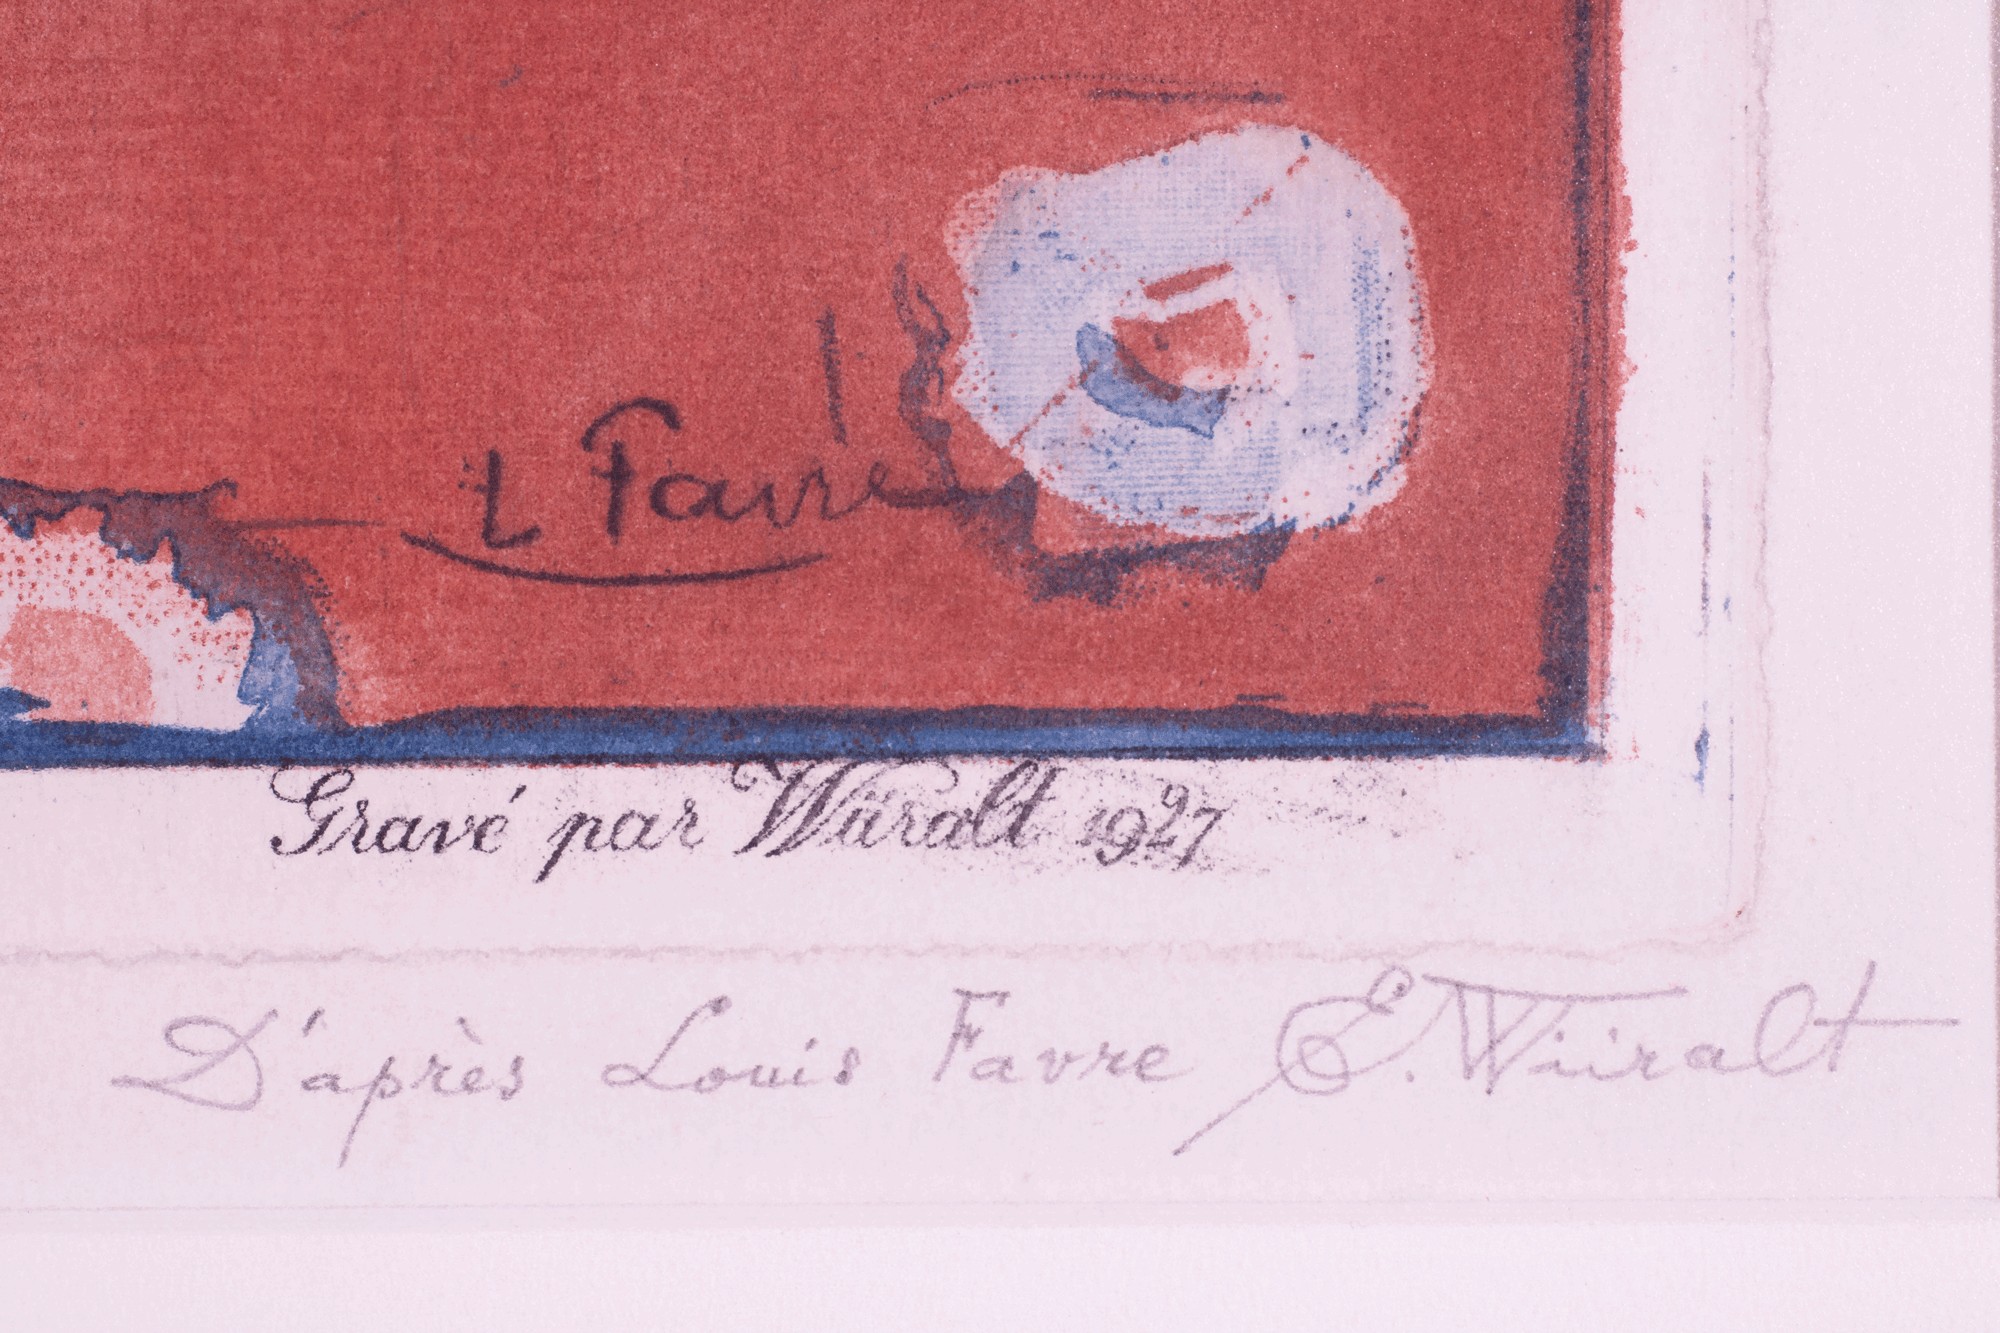 L Favre
Gravé par Wiiralt 1927
D'après Louis Favre E. Wiiralt